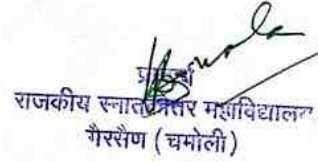 राजकीय स्नातकोत्तर महाविद्यालय
गैरसैण (चमोली)